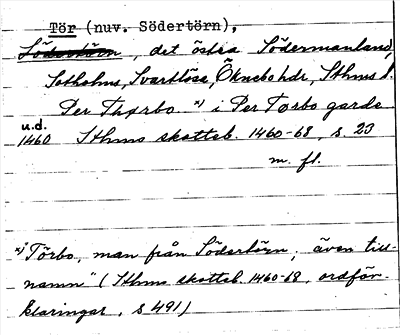 Tör (nuv. Södertörn),
Södertörn, det östra Södermanland,
Sotholms, Svartlösa, Öknebo hdr, Sthms l.
Per Thørbo. *) i Per Tørbo garde
u.d.
1460 Sthms skatteb. 1460-68, s 23
m. fl.
*) "Törbo, man från Södertörn; även till-
namn" (Sthms skotteb. 1460-68, ordför-
klaringar, s 491)